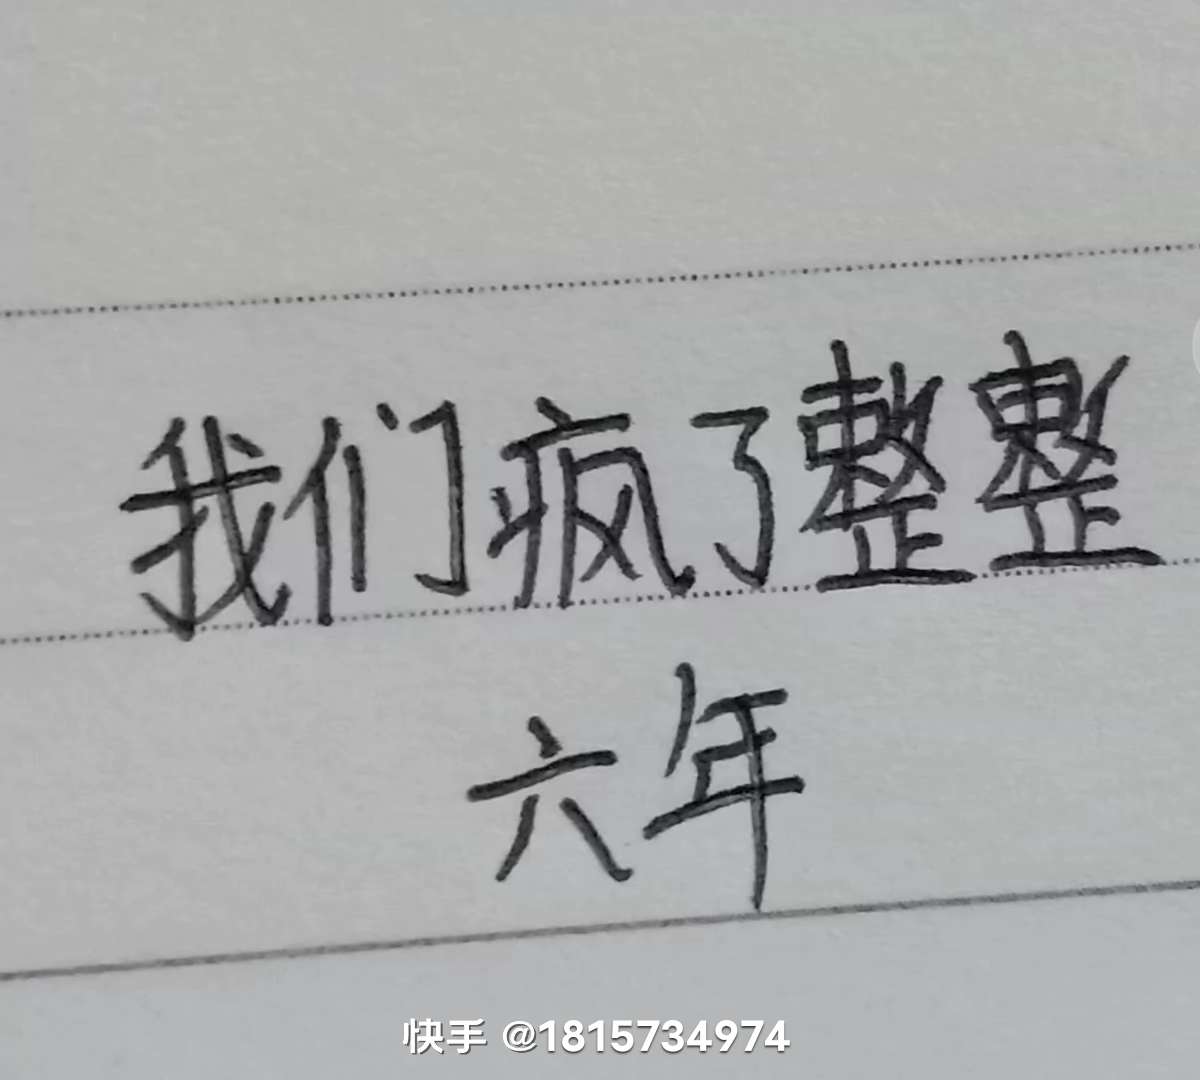 我们疯了整整
六年
快手 @1815734974